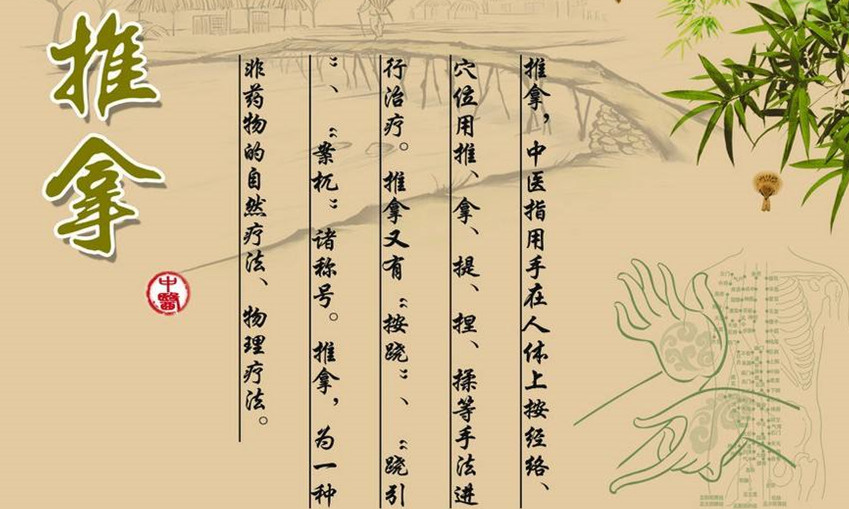 推拿
中醫
推拿，中医指用手在人体上按经络、
穴位用推、拿、提、捏、揉等手法进
行治疗。推拿又有“按跷”、“跷引
”、“案杌”诸称号。推拿，为一种
非药物的自然疗法、物理疗法。